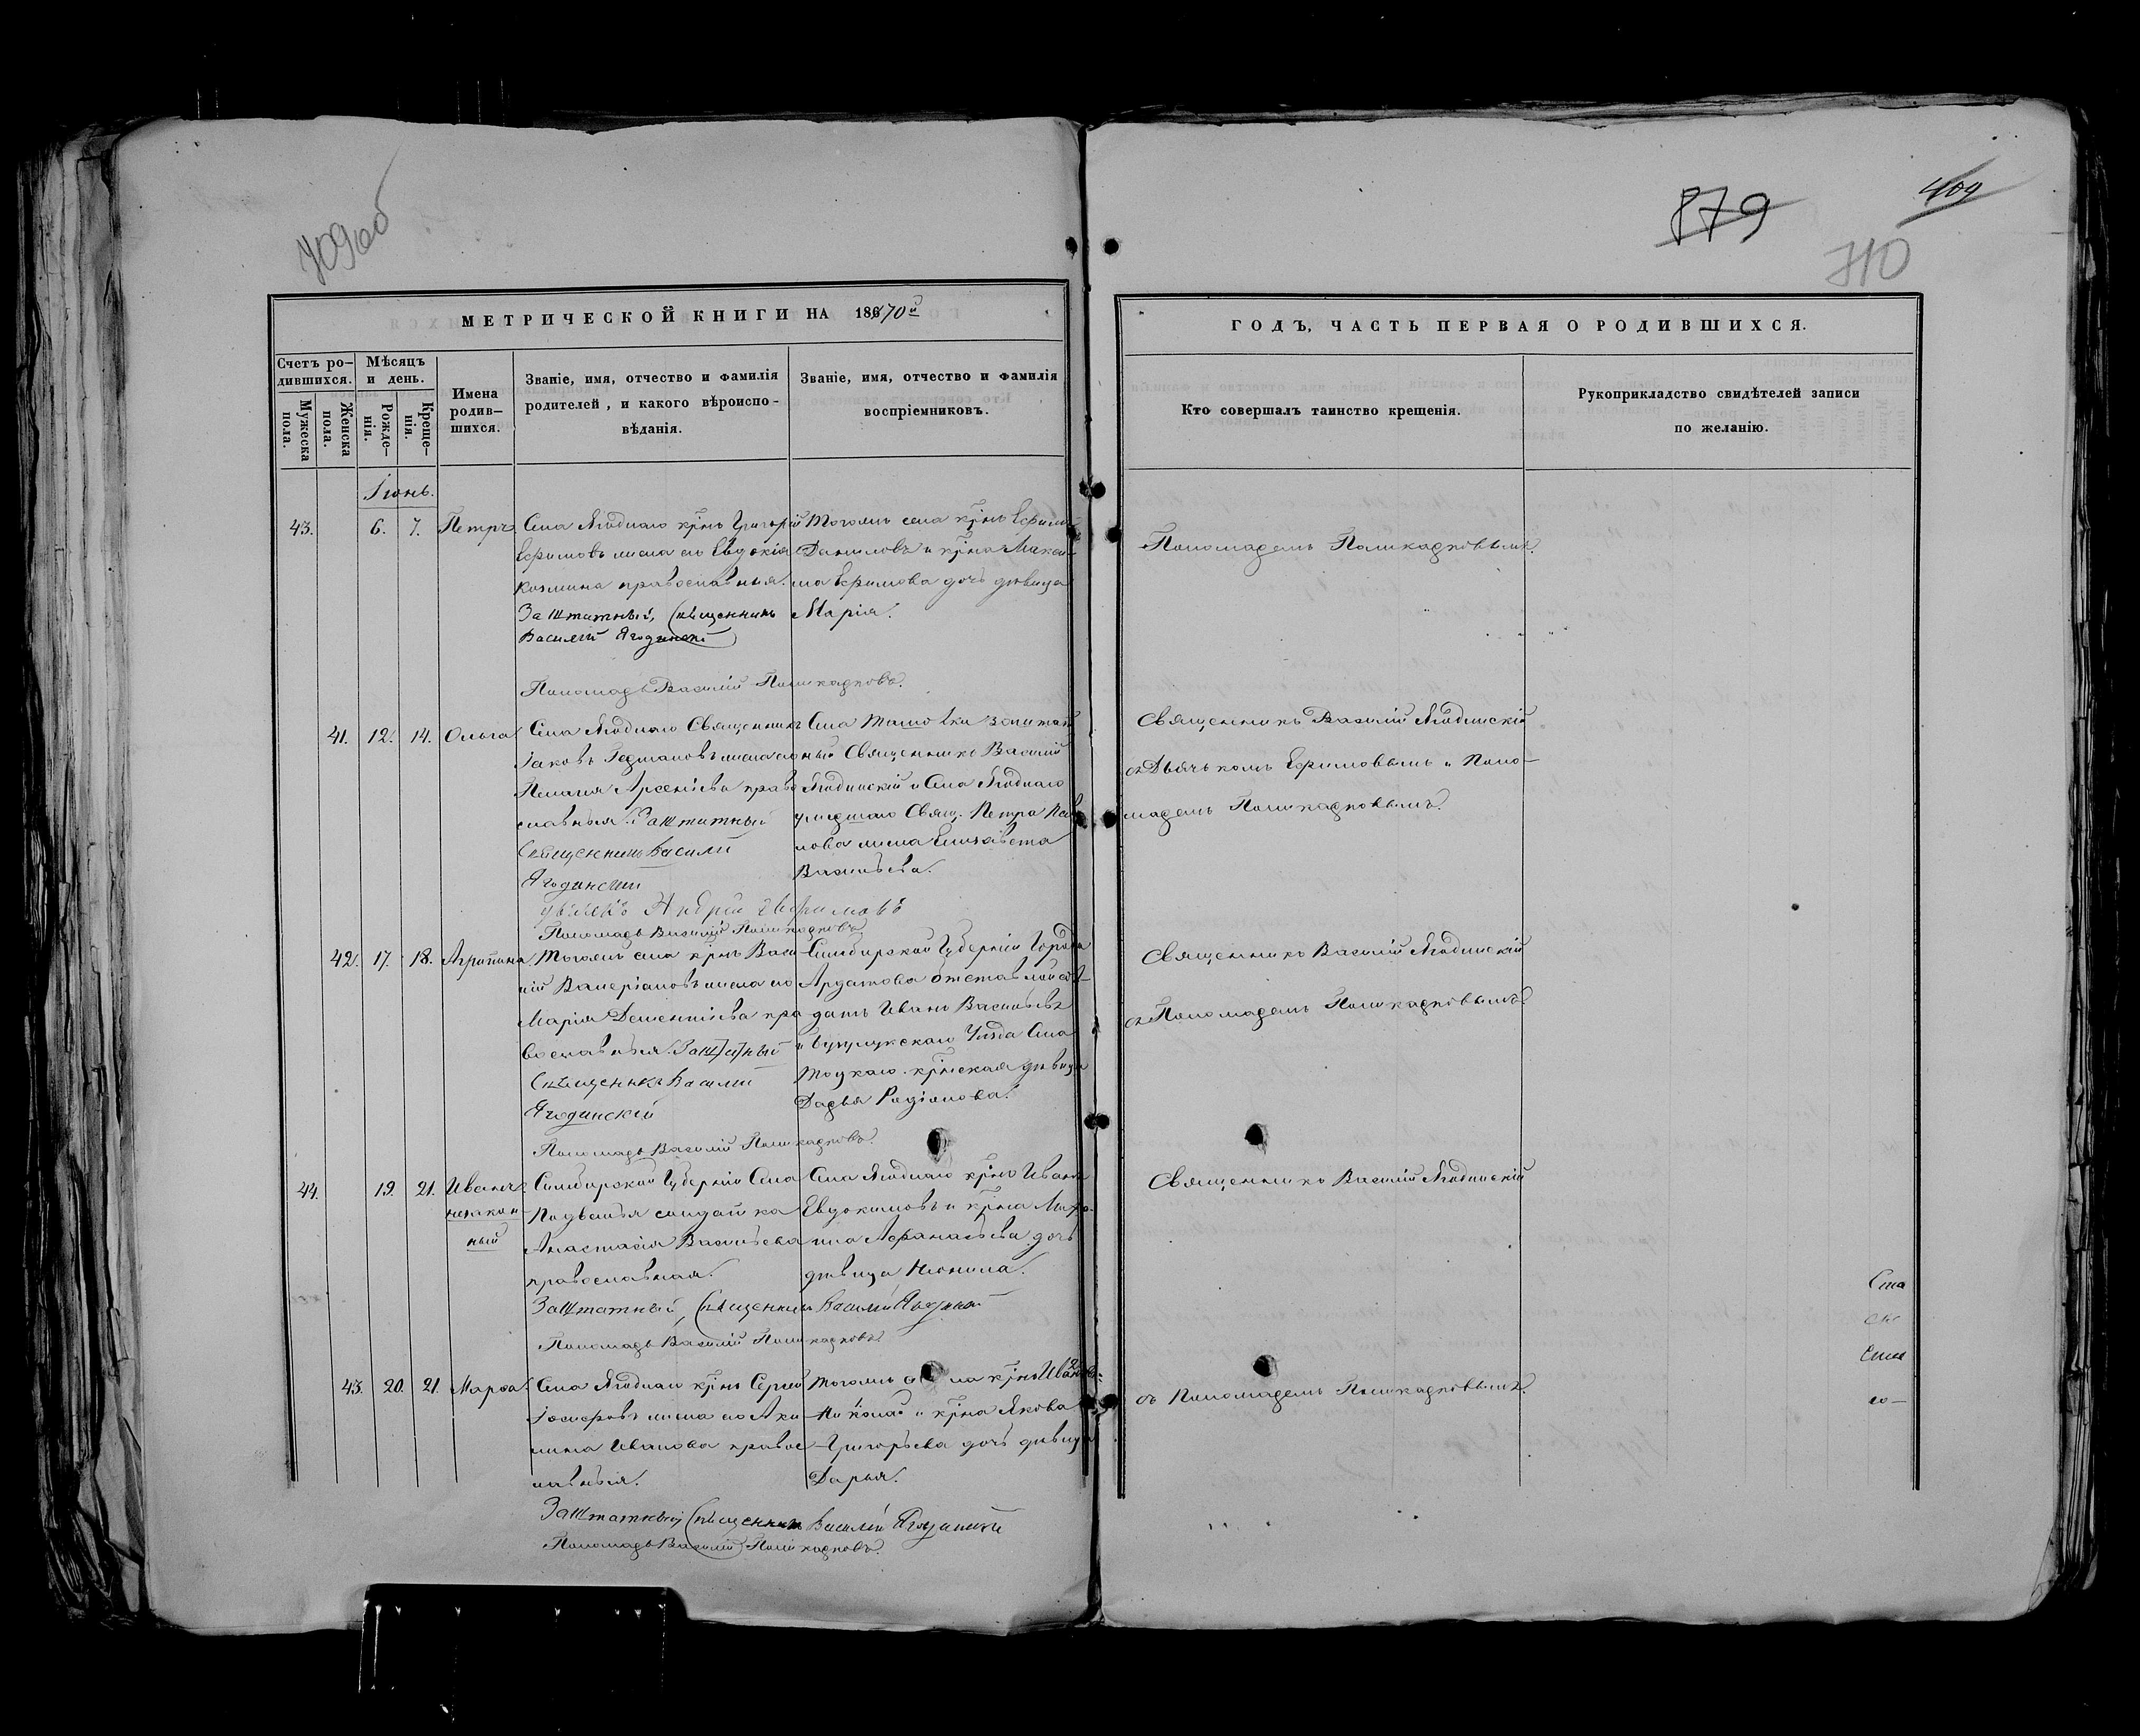 709об
879
409
710
МЕТРИЧЕСКОЙ КНИГИ НА 1870й
ГОДЪ, ЧАСТЬ ПЕРВАЯ О РОДИВШИХСЯ.
Счетъ ро-
дившихся.
Мужеска
пола.
Женска
пола.
Мѣсяцъ
и день.
Рожде-
нія.
Креще-
нія.
Имена
родив-
шихся.
Званіе, имя, отчество и фамилія
родителей, и какого вѣроиспо-
вѣданія.
Званіе, имя, отчество и фамилія
воспріемниковъ.
Кто совершалъ таинство крещенія.
Рукоприкладство свидѣтелей записи
по желанію.
Іюнь.
43. 6. 7. Петръ.
Села Ягоднаго крнъ Григорій
Ефимовъ жена его Евдокія
Козмина православныя.
Заштатный, Священникъ
Василій Ягодинскій
Пономарь Василій Поликарповъ.
Тогоже села крнъ Ефимъ
Даниловъ и крна Макси-
ма Ефимова дочь дѣвица
Марія.
Пономаремъ Поликарповымъ.
41. 12. 14. Ольга
Села Ягоднаго Священникъ
Іаковъ Германовъ жена его
Пелагія Арсеніева право
славныя. Заштатный
Священникъ Василій
Ягодинскій
Андрей Ефимовъ
Пономарь Василій Поликарповъ
Села Ташовки заштат
ный Священникъ Василій
Ягодинскій и Села Ягоднаго
умершаго Свящ. Петра Пав
лова жена Елизавета
Васильева.
Священникъ Василій Ягодинскій
съ Дьячкомъ Ефимовымъ и Поно-
маремъ Поликарповымъ.
42. 17. 18. Агрипина
Тогоже села крнъ Васи
лій Валеріановъ жена его
Марія Дементіева пра
вославныя. Заштатный
Священникъ Василій
Ягодинскій
Пономарь Василій Поликарповъ.
Симбирской Губерніи Города
Ардатова отставной сол-
датъ Иванъ Васильевъ
и Бузулукскаго Уѣзда Села
Тоцкаго крнская дѣвица
Дарья Родіонова.
Священникъ Василій Ягодинскій
съ Пономаремъ Поликарповымъ
44. 19. 21. Иванъ
незакон-
ный
Симбирской Губерніи Села
солдатка
Анастасія Васильева
православная.
Заштатный, Священникъ Василій Ягодинскій
Пономарь Василій Поликарповъ
Села Ягоднаго крнъ Иванъ
Евдокимовъ и крна
Афанасьева дочь
дѣвица
Священникъ Василій Ягодинскій
43. 20. 21. Марѳа.
Села Ягоднаго крнъ Сергій
Іосифовъ жена его Аки
лина Иванова правос
лавныя.
Заштатный Священникъ Василій Ягодинскій
Пономарь Василій Поликарповъ.
Тогоже села крнъ
и крна Якова
Григорьева дочь дѣвица
Дарья.
съ Пономаремъ Поликарповымъ.